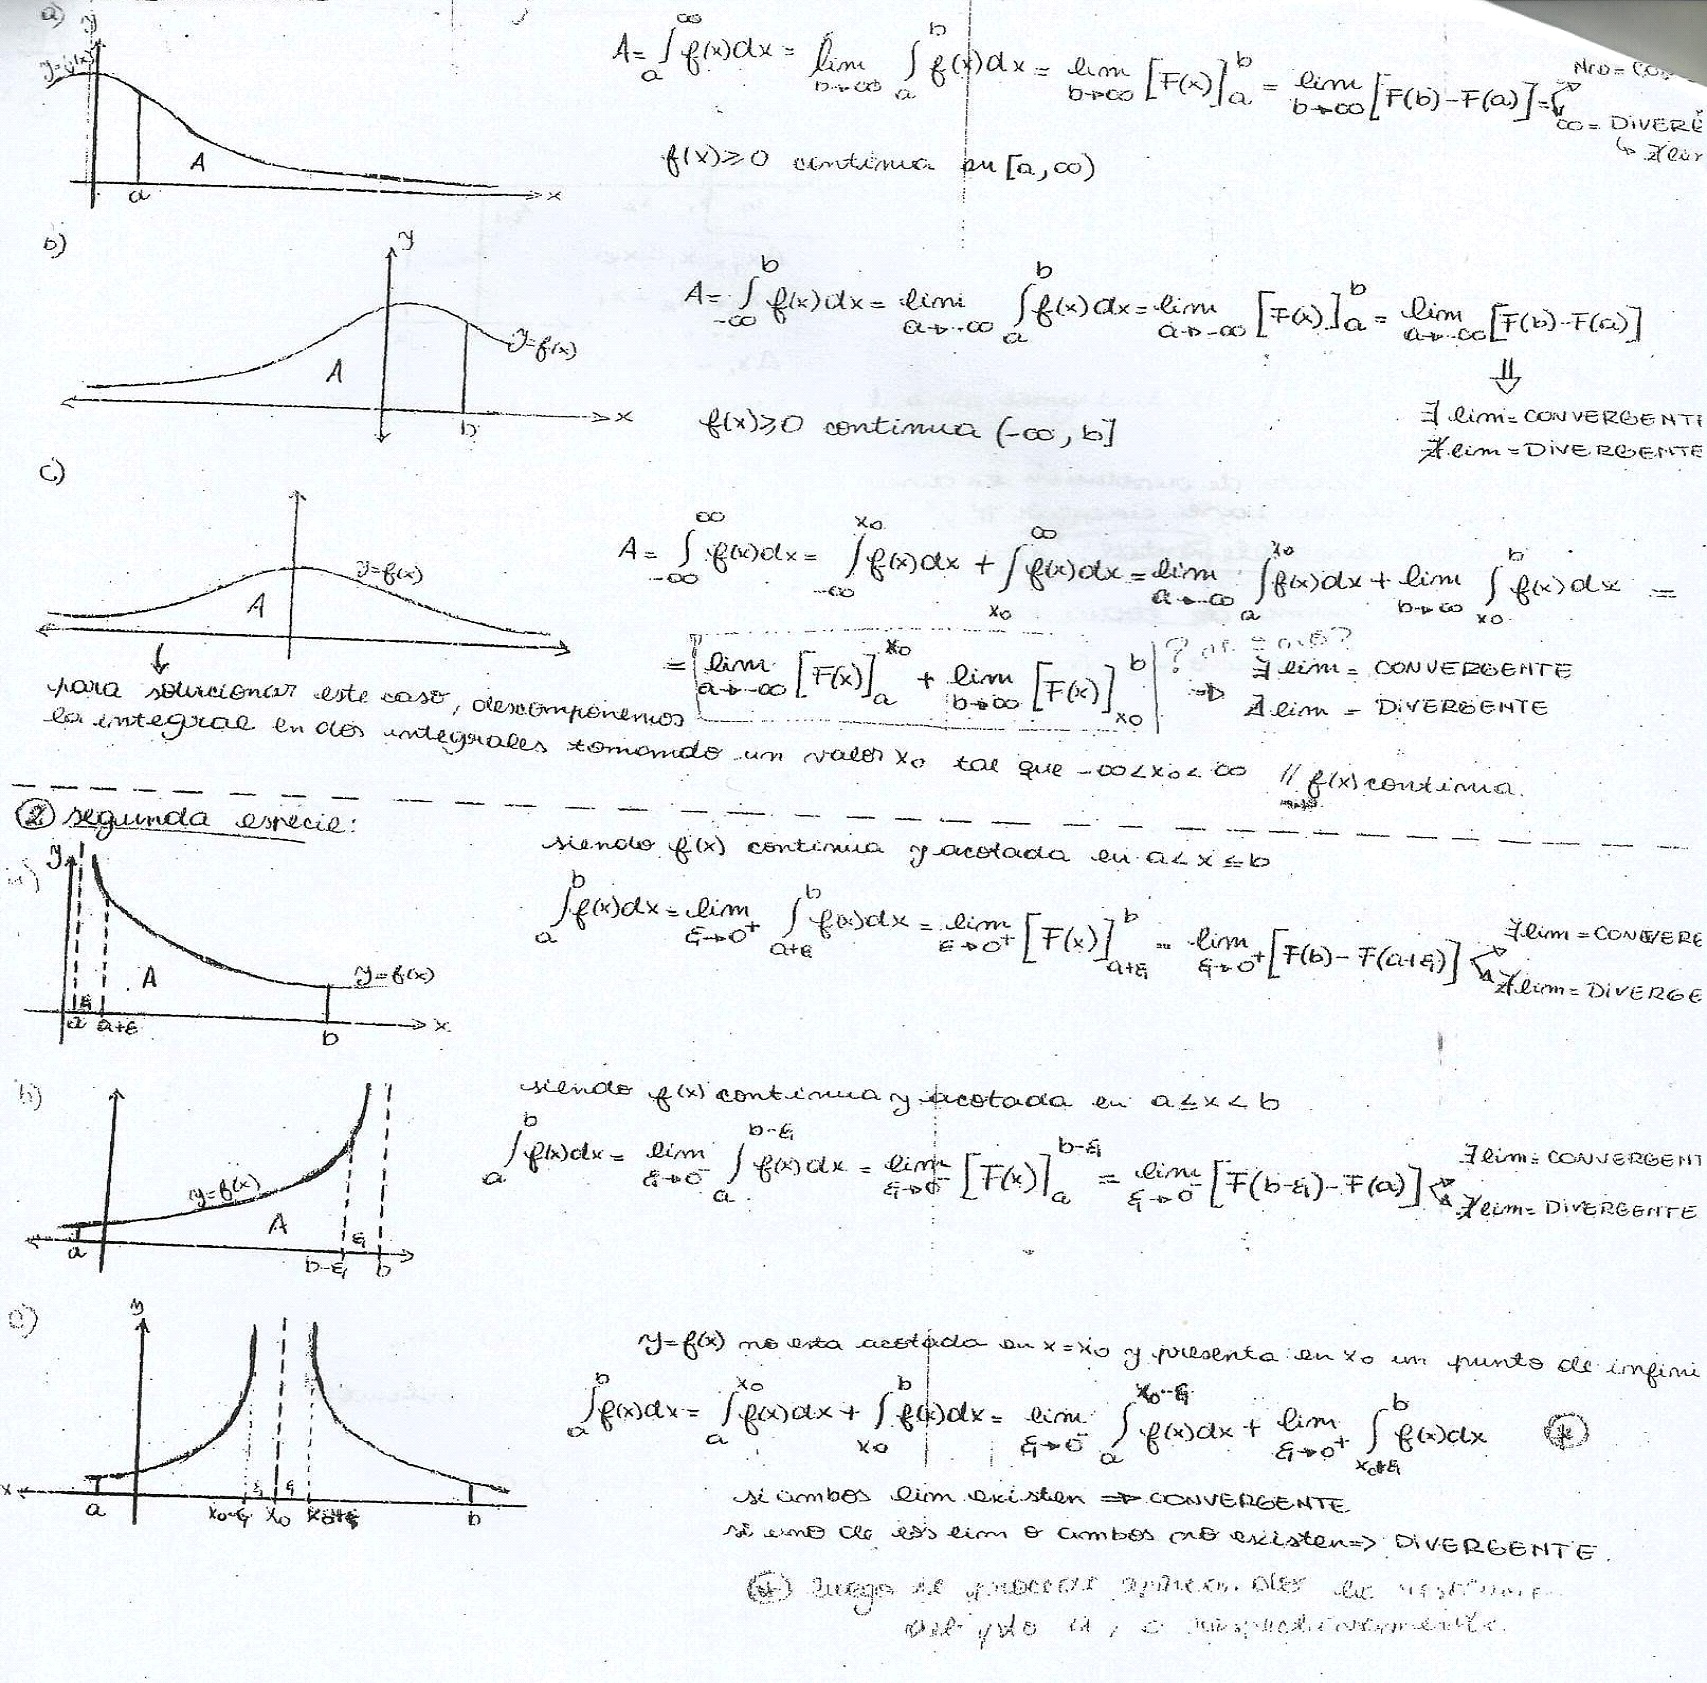 a)
y
y=f(x)
A
a
x
A= ∫_a^∞ f(x)dx = lim_{b→∞} ∫_a^b f(x)dx = lim_{b→∞} [F(x)]_a^b = lim_{b→∞} [F(b)-F(a)] =
∞ = DIVERGE
f(x)≥0 continua en [a,∞)
b)
y
y=f(x)
A
b
x
A= ∫_{-∞}^b f(x)dx = lim_{a→-∞} ∫_a^b f(x)dx = lim_{a→-∞} [F(x)]_a^b = lim_{a→-∞} [F(b)-F(a)]
⇓
∃ lim = CONVERGENTE
∄ lim = DIVERGENTE
f(x)≥0 continua (-∞, b]
c)
y=f(x)
A
A= ∫_{-∞}^∞ f(x)dx = ∫_{-∞}^{x0} f(x)dx + ∫_{x0}^∞ f(x)dx = lim_{a→-∞} ∫_a^{x0} f(x)dx + lim_{b→∞} ∫_{x0}^b f(x)dx =
= lim_{a→-∞} [F(x)]_a^{x0} + lim_{b→∞} [F(x)]_{x0}^b ⇒
∃ lim = CONVERGENTE
∄ lim = DIVERGENTE
para solucionar este caso, descomponemos
la integral en dos integrales tomando un valor x0 tal que -∞<x0<∞ // f(x) continua.
② segunda especie:
siendo f(x) continua y acotada en a<x≤b
a)
y
A
y=f(x)
ε
a a+ε b x
∫_a^b f(x)dx = lim_{ε→0+} ∫_{a+ε}^b f(x)dx = lim_{ε→0+} [F(x)]_{a+ε}^b = lim_{ε→0+} [F(b)-F(a+ε)]
∃ lim = CONVERGE
∄ lim = DIVERGE
b)
siendo f(x) continua y acotada en a≤x<b
y=f(x)
A
ε
a b-ε b
∫_a^b f(x)dx = lim_{ε→0-} ∫_a^{b-ε} f(x)dx = lim_{ε→0-} [F(x)]_a^{b-ε} = lim_{ε→0-} [F(b-ε)-F(a)]
∃ lim = CONVERGENT
∄ lim = DIVERGENTE
c)
y
ε ε
x a x0-ε x0 x0+ε b
y=f(x) no esta acotada en x=x0 y presenta en x0 un punto de infini
∫_a^b f(x)dx = ∫_a^{x0} f(x)dx + ∫_{x0}^b f(x)dx = lim_{ε→0-} ∫_a^{x0-ε} f(x)dx + lim_{ε→0+} ∫_{x0+ε}^b f(x)dx (*)
si ambos lim existen ⇒ CONVERGENTE
si uno de los lim o ambos no existen ⇒ DIVERGENTE.
(*) luego se procede
respectivamente.